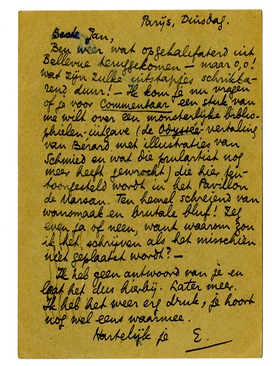 Parijs, Dinsdag.
Beste Jan,
Ben weer wat opgekalefaterd uit
Bellevue teruggekomen – maar o, o!
wat zijn zulke uitstapjes schrikba-
rend duur! – Ik kom je nu vragen
of je voor Commentaar een stuk van
me wilt over een monsterlijke biblio-
phielen-uitgave (de Odyssee-vertaling
van Bérard met illustraties van
Schmied en wat die prulartist nog
meer heeft gewrocht) die hier ten-
toongesteld wordt in het Pavillon
de Marsan. Ten hemel schreiend van
wansmaak en brutale bluf! Zeg
even ja of neen, want waarom zou
ik het schrijven als het misschien
niet geplaatst wordt? –
Ik heb geen antwoord van je en
laat het dus hierbij. Later meer.
Ik heb het weer erg druk, je hoort
nog wel eens waarmee.
Hartelijk je E.